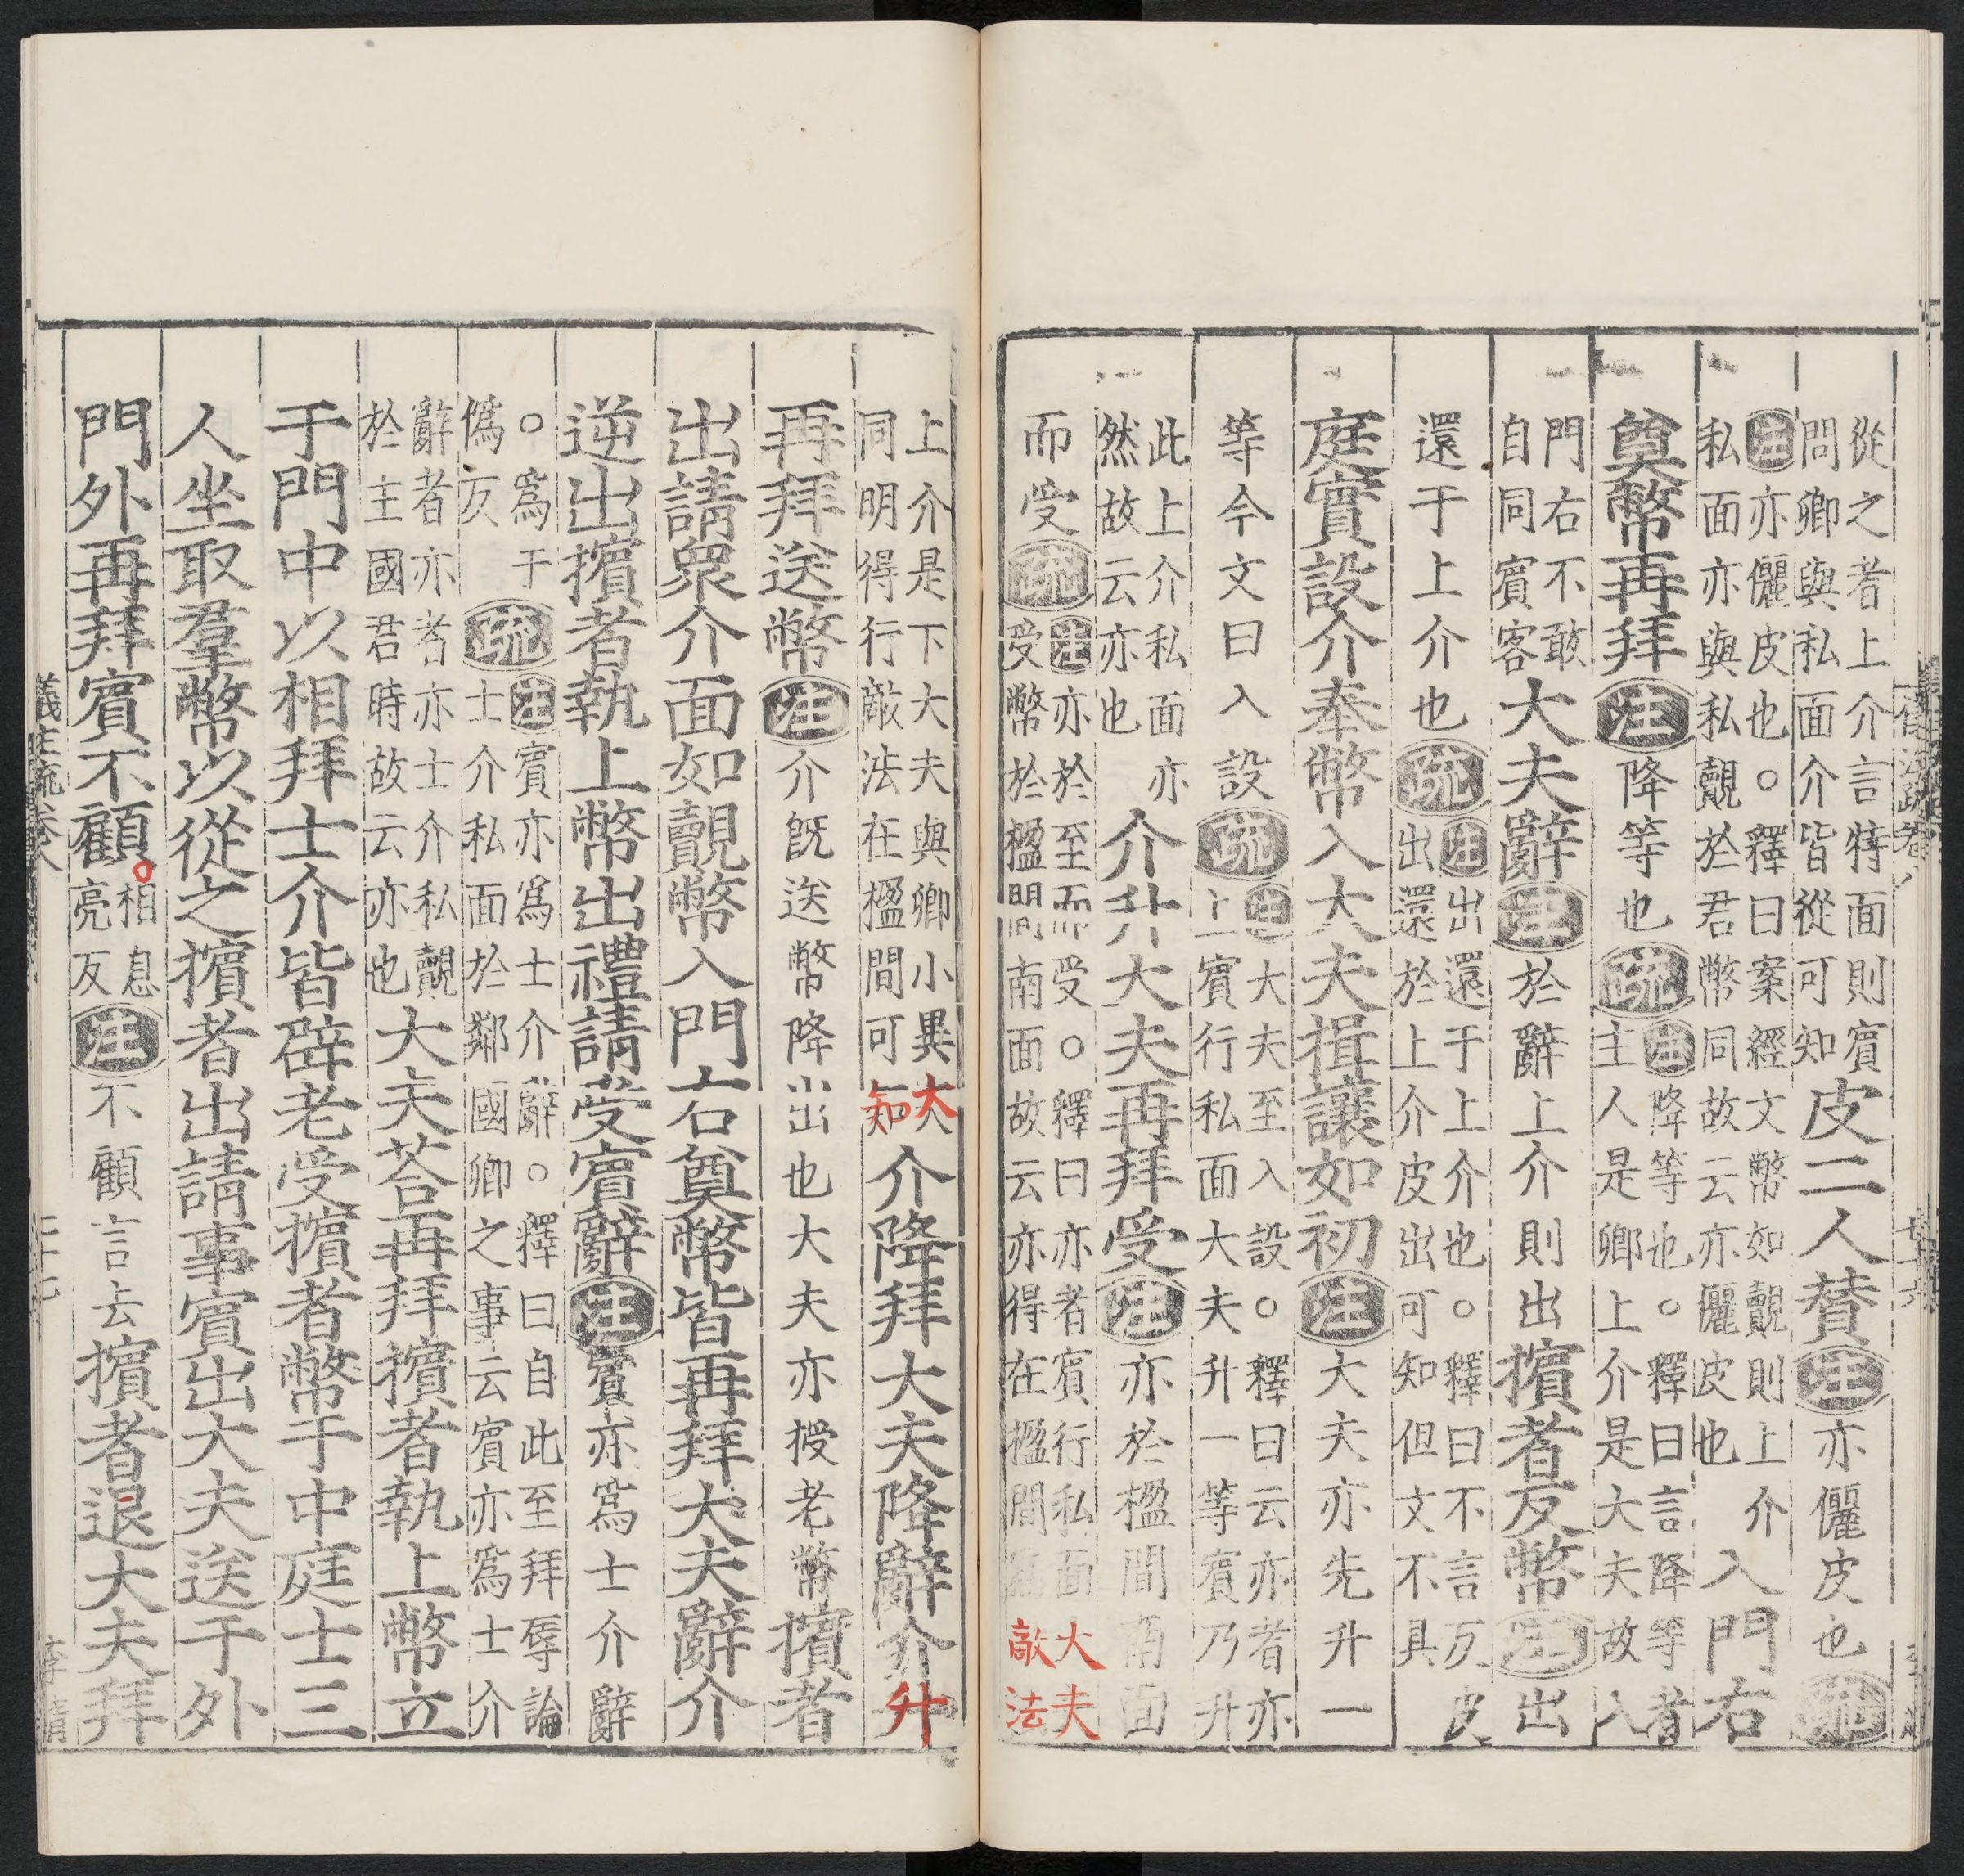 從之者上介言特面則賓問卿與私面介皆從可知皮二人贊注亦儷皮也疏
注亦儷皮也○釋曰案經文幣如覿則上介私面亦與私覿於君幣同故云亦儷皮也入門右
奠幣再拜注降等也疏注降等也○釋曰言降等者主人是卿上介是大夫故入
門右不敢自同賓客大夫辭注於辭上介則出擯者反幣注出
還于上介也疏注出還于上介也○釋曰不言反皮出還於上介皮出可知但文不具
庭實設介奉幣入大夫揖讓如初注大夫亦先升一
等今文曰入設疏注大夫至入設○釋曰云亦者亦上賓行私面大夫升一等賓乃升
此上介私面亦然故云亦也介升大夫再拜受注亦於楹間南面
而受疏注亦於至而受○釋曰亦者賓行私面大夫受幣於楹間南面故云亦得在楹間爲敵法
上介是下大夫與卿小異大同明得行敵法在楹間可知介降拜大夫降辭介升
再拜送幣注介旣送幣降出也大夫亦授老幣擯者
出請眾介面如覿幣入門右奠幣皆再拜大夫辭介
逆出擯者執上幣出禮請受賓辭注賓亦爲士介辭
○爲于僞反疏注賓亦爲士介辭○釋曰自此至拜辱論士介私面於鄰國卿之事云賓亦爲士介
辭者亦者亦士介私覿於主國君時故云亦也大夫荅再拜擯者執上幣立
于門中以相拜士介皆辟老受擯者幣于中庭士三
人坐取羣幣以從之擯者出請事賓出大夫送于外
門外再拜賓不顧相息亮反注不顧言去擯者退大夫拜
儀主疏卷八
七十七
李清